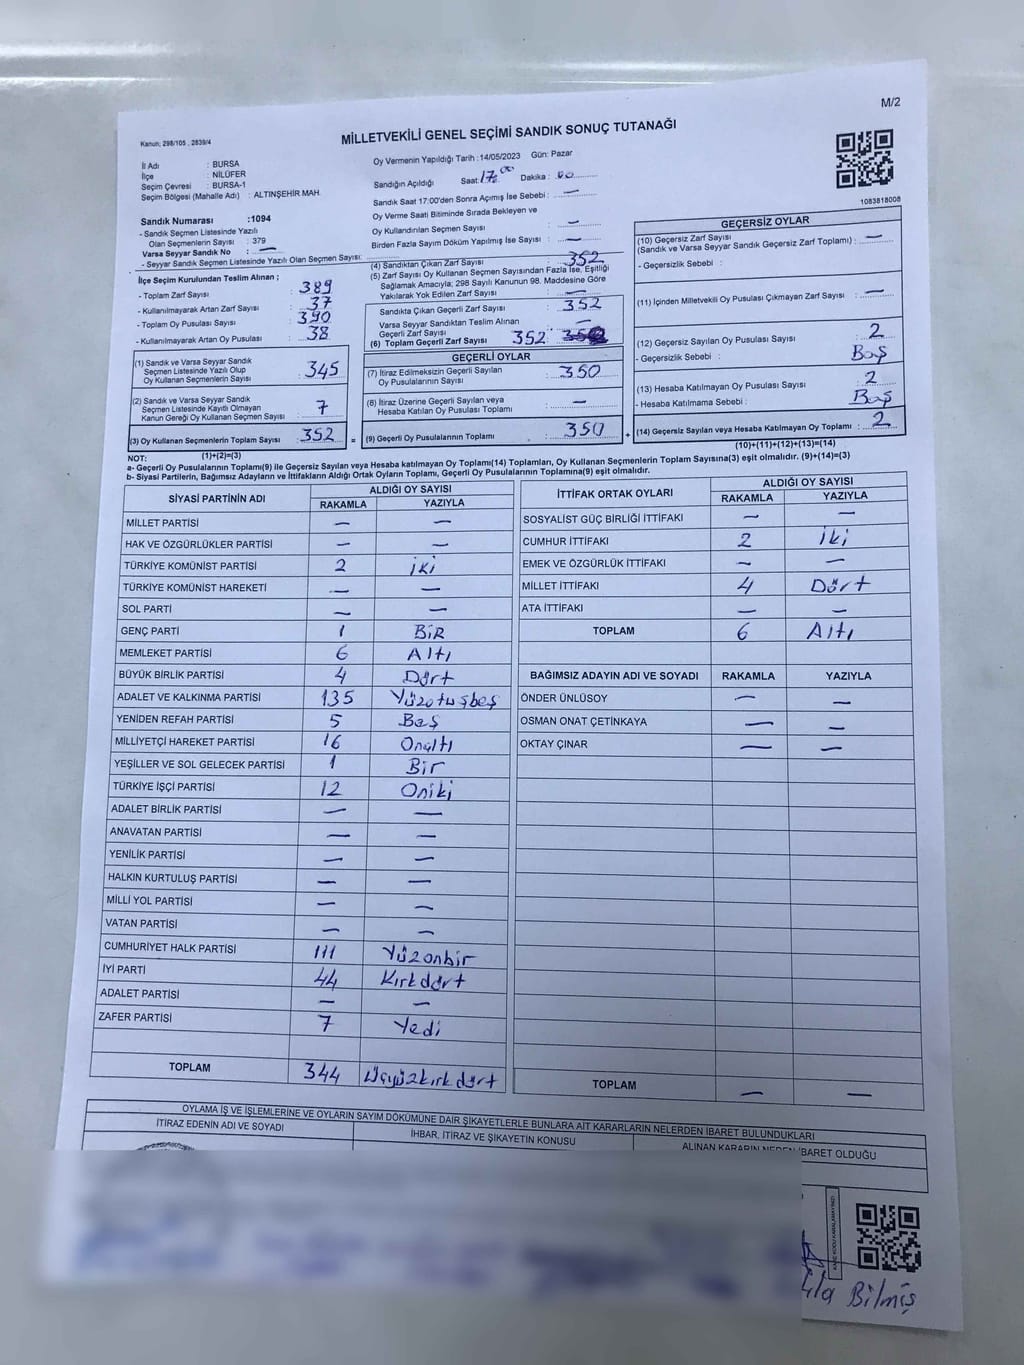 M/2
Kanun; 298/105 , 2839/4
MİLLETVEKİLİ GENEL SEÇİMİ SANDIK SONUÇ TUTANAĞI
İl Adı : BURSA
İlçe : NİLÜFER
Seçim Çevresi : BURSA-1
Seçim Bölgesi (Mahalle Adı) : ALTINŞEHİR MAH.
Sandık Numarası :1094
- Sandık Seçmen Listesinde Yazılı
Olan Seçmenlerin Sayısı : 379
Varsa Seyyar Sandık No : —
- Seyyar Sandık Seçmen Listesinde Yazılı Olan Seçmen Sayısı:
Oy Vermenin Yapıldığı Tarih :14/05/2023 Gün: Pazar
Sandığın Açıldığı Saat:17.00 Dakika : 00
Sandık Saat 17:00'den Sonra Açımış İse Sebebi : —
Oy Verme Saati Bitiminde Sırada Bekleyen ve
Oy Kullandırılan Seçmen Sayısı : —
Birden Fazla Sayım Döküm Yapılmış İse Sayısı : —
1083818008
İlçe Seçim Kurulundan Teslim Alınan ;
- Toplam Zarf Sayısı : 389
- Kullanılmayarak Artan Zarf Sayısı : 37
- Toplam Oy Pusulası Sayısı : 390
- Kullanılmayarak Artan Oy Pusulası : 38
(1) Sandık ve Varsa Seyyar Sandık
Seçmen Listesinde Yazılı Olup
Oy Kullanan Seçmenlerin Sayısı : 345
(2) Sandık ve Varsa Seyyar Sandık
Seçmen Listesinde Kayıtlı Olmayan
Kanun Gereği Oy Kullanan Seçmen Sayısı : 7
(3) Oy Kullanan Seçmenlerin Toplam Sayısı : 352
(1)+(2)=(3)
(4) Sandıktan Çıkan Zarf Sayısı : 352
(5) Zarf Sayısı Oy Kullanan Seçmen Sayısından Fazla İse, Eşitliği
Sağlamak Amacıyla; 298 Sayılı Kanunun 98. Maddesine Göre
Yakılarak Yok Edilen Zarf Sayısı : —
Sandıkta Çıkan Geçerli Zarf Sayısı : 352
Varsa Seyyar Sandıktan Teslim Alınan
Geçerli Zarf Sayısı : —
(6) Toplam Geçerli Zarf Sayısı 352
GEÇERLİ OYLAR
(7) İtiraz Edilmeksizin Geçerli Sayılan
Oy Pusulalarının Sayısı : 350
(8) İtiraz Üzerine Geçerli Sayılan veya
Hesaba Katılan Oy Pusulası Toplamı : —
= (9) Geçerli Oy Pusulalarının Toplamı : 350 +
GEÇERSİZ OYLAR
(10) Geçersiz Zarf Sayısı
(Sandık ve Varsa Seyyar Sandık Geçersiz Zarf Toplamı) : —
- Geçersizlik Sebebi :
(11) İçinden Milletvekili Oy Pusulası Çıkmayan Zarf Sayısı : —
(12) Geçersiz Sayılan Oy Pusulası Sayısı : 2
- Geçersizlik Sebebi : Boş
(13) Hesaba Katılmayan Oy Pusulası Sayısı : 2
- Hesaba Katılmama Sebebi : Boş
(14) Geçersiz Sayılan veya Hesaba Katılmayan Oy Toplamı : 2
(10)+(11)+(12)+(13)=(14)
NOT:
a- Geçerli Oy Pusulalarının Toplamı(9) ile Geçersiz Sayılan veya Hesaba katılmayan Oy Toplamı(14) Toplamları, Oy Kullanan Seçmenlerin Toplam Sayısına(3) eşit olmalıdır. (9)+(14)=(3)
b- Siyasi Partilerin, Bağımsız Adayların ve İttifakların Aldığı Ortak Oyların Toplamı, Geçerli Oy Pusulalarının Toplamına(9) eşit olmalıdır.
SİYASİ PARTİNİN ADI ALDIĞI OY SAYISI
RAKAMLA YAZIYLA
MİLLET PARTİSİ — —
HAK VE ÖZGÜRLÜKLER PARTİSİ — —
TÜRKİYE KOMÜNİST PARTİSİ 2 iki
TÜRKİYE KOMÜNİST HAREKETİ — —
SOL PARTİ — —
GENÇ PARTİ 1 BİR
MEMLEKET PARTİSİ 6 Altı
BÜYÜK BİRLİK PARTİSİ 4 Dört
ADALET VE KALKINMA PARTİSİ 135 Yüzotuzbeş
YENİDEN REFAH PARTİSİ 5 Beş
MİLLİYETÇİ HAREKET PARTİSİ 16 Onaltı
YEŞİLLER VE SOL GELECEK PARTİSİ 1 Bir
TÜRKİYE İŞÇİ PARTİSİ 12 Oniki
ADALET BİRLİK PARTİSİ — —
ANAVATAN PARTİSİ — —
YENİLİK PARTİSİ — —
HALKIN KURTULUŞ PARTİSİ — —
MİLLİ YOL PARTİSİ — —
VATAN PARTİSİ — —
CUMHURİYET HALK PARTİSİ 111 Yüzonbir
İYİ PARTİ 44 Kırkdört
ADALET PARTİSİ — —
ZAFER PARTİSİ 7 Yedi
TOPLAM 344 Üçyüzkırkdört
İTTİFAK ORTAK OYLARI ALDIĞI OY SAYISI
RAKAMLA YAZIYLA
SOSYALİST GÜÇ BİRLİĞİ İTTİFAKI — —
CUMHUR İTTİFAKI 2 iki
EMEK VE ÖZGÜRLÜK İTTİFAKI — —
MİLLET İTTİFAKI 4 Dört
ATA İTTİFAKI — —
TOPLAM 6 Altı
BAĞIMSIZ ADAYIN ADI VE SOYADI RAKAMLA YAZIYLA
ÖNDER ÜNLÜSOY — —
OSMAN ONAT ÇETİNKAYA — —
OKTAY ÇINAR — —
TOPLAM — —
OYLAMA İŞ VE İŞLEMLERİNE VE OYLARIN SAYIM DÖKÜMÜNE DAİR ŞİKAYETLERLE BUNLARA AİT KARARLARIN NELERDEN İBARET BULUNDUKLARI
İTİRAZ EDENİN ADI VE SOYADI İHBAR, İTİRAZ VE ŞİKAYETİN KONUSU ALINAN KARARIN NEDEN İBARET OLDUĞU
KARE KODU KARALAMAYINIZ!
Bilmiş